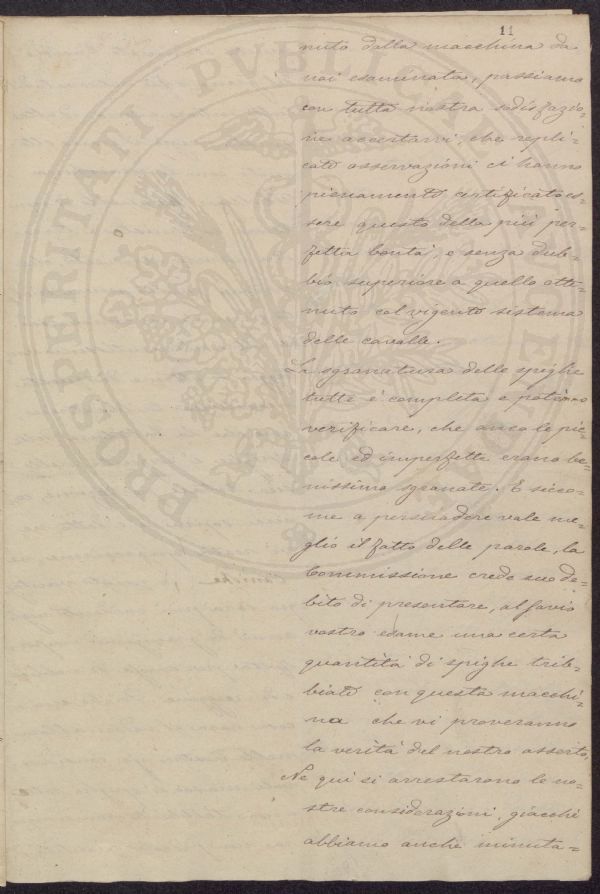 11
nuto dalla macchina da
noi esaminata, passiamo
con tutta nostra sodisfazio-
ne accertarvi, che repli-
cate osservazioni ci hanno
pienamente certificato es-
sere questo della più per-
fetta bontà, e senza dub-
bio superiore a quello otte-
nuto col vigente sistema
delle cavalle.
La sgranatura delle spighe
tutte è completa e potemmo
verificare, che anco le pic-
cole ed imperfette erano be-
nissimo sgranate. E sicco-
me a persuadere vale me-
glio il fatto delle parole, la
Commissione crede suo de-
bito di presentare, al savio
vostro esame una certa
quantità di spighe treb-
biate con questa macchi-
na che vi proveranno
la verità del nostro asserto,
Ne qui si arrestarono le no-
stre considerazioni, giacchè
abbiamo anche minuta-
PROSPERITATI PVBLICAE